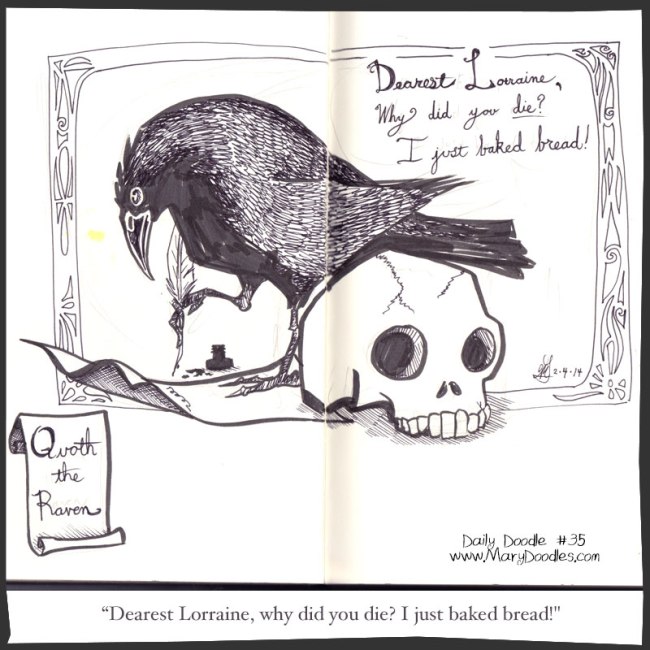 Dearest Lorraine,
Why did you die?
I just baked bread!
2-4-14
Quoth
the
Raven
Daily Doodle #35
www.MaryDoodles.com
“Dearest Lorraine, why did you die? I just baked bread!"